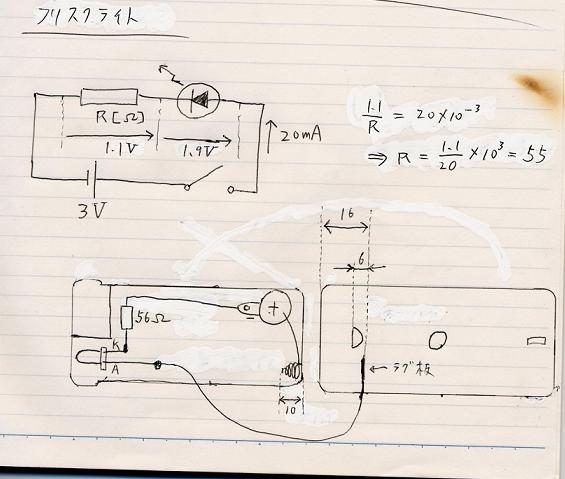 フリスクライト
R[Ω]
1.1V
1.9V
20mA
3V
1.1/R = 20×10⁻³
⇒ R = 1.1/20 ×10³ = 55
16
6
56Ω
+
−
K
A
10
←ラグ板